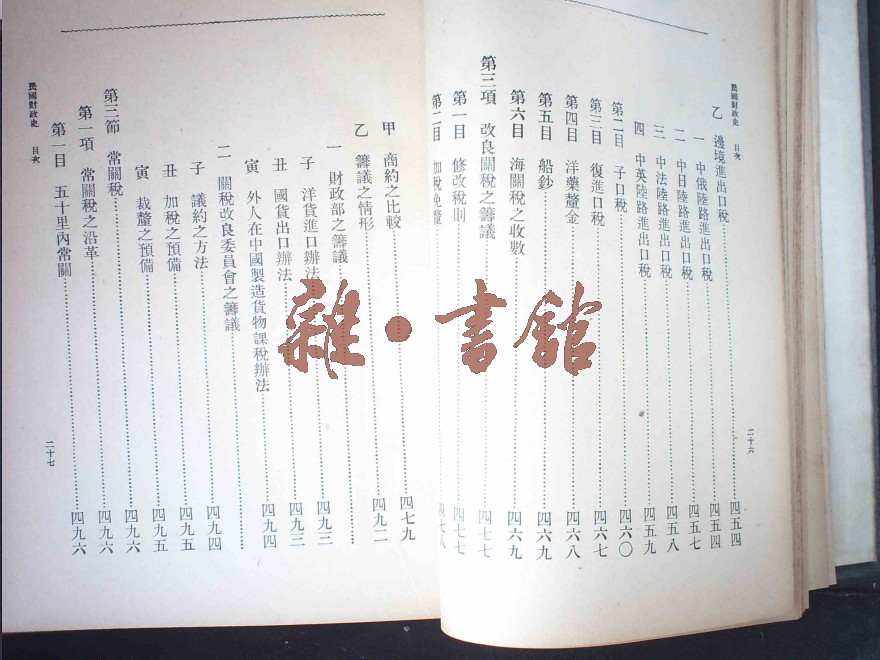 民國財政史 目次
乙 邊境進出口稅……四五四
一 中俄陸路進出口稅……四五四
二 中日陸路進出口稅……四五七
三 中法陸路進出口稅……四五八
四 中英陸路進出口稅……四五九
第二目 子口稅……四六〇
第三目 復進口稅……四六七
第四目 洋藥釐金……四六八
第五目 船鈔……四六九
第六目 海關稅之收數……四六九
第三項 改良關稅之籌議……四七七
第一目 修改稅則……四七七
第二目 加稅免釐……四七八
二十六
甲 商約之比較……四七九
乙 籌議之情形……四九二
一 財政部之籌議……
子 洋貨進口辦法……四九三
丑 國貨出口辦法……四九三
寅 外人在中國製造貨物課稅辦法……四九四
二 關稅改良委員會之籌議……
子 議約之方法……四九四
丑 加稅之預備……四九五
寅 裁釐之預備……四九五
第三節 常關稅……四九六
第一項 常關稅之沿革……四九六
第一目 五十里內常關……四九六
民國財政史 目次
二十七
雜·書館